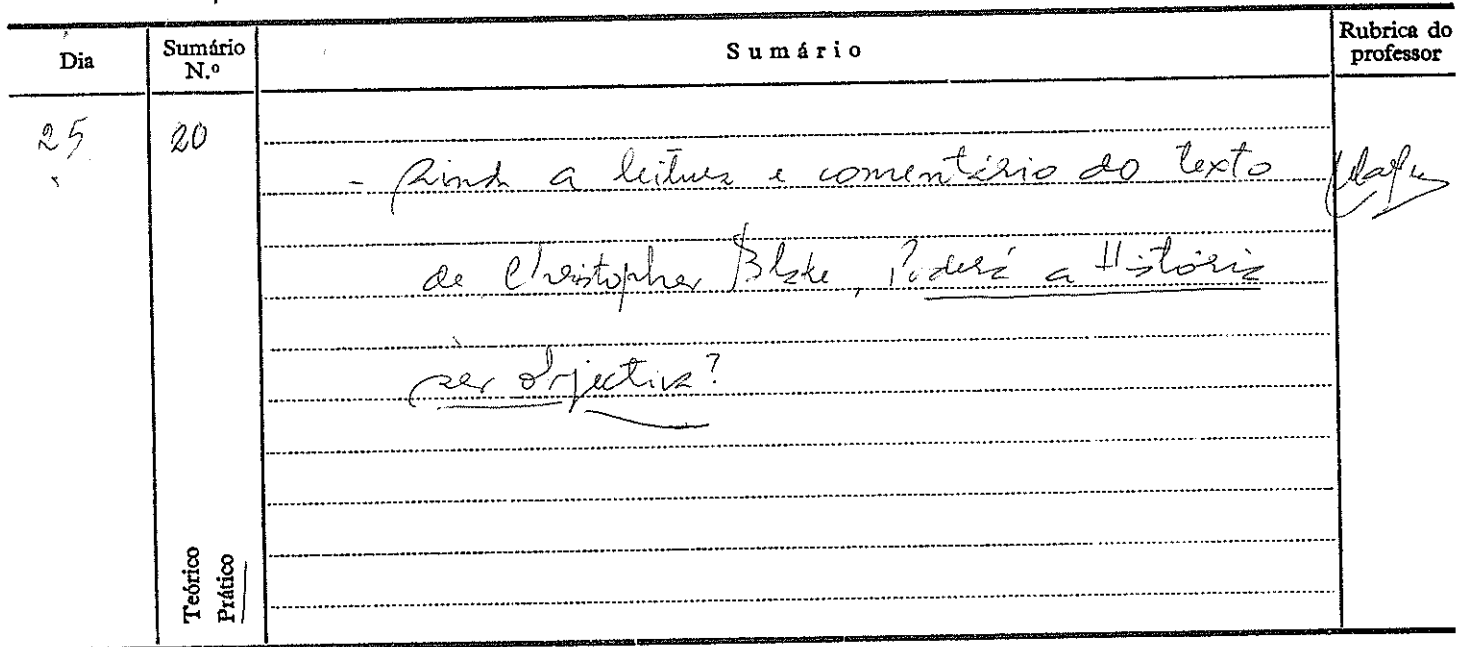 Dia
Sumário N.º
Sumário
Rubrica do professor
25
20
- Ainda a leitura e comentário do texto
de Christopher Blake, Poderá a História
ser objectiva?
Teórico
Prático